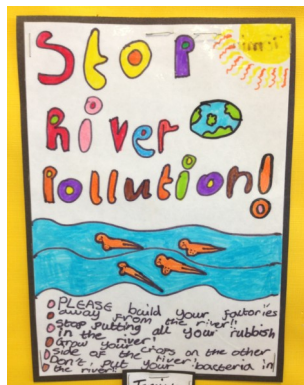 Stop
River
Pollution!
PLEASE build your factories
away from the river!!
Stop putting all your rubbish
in the river!
Grow your crops on the other
side of the river!
Don't put your bacteria in
the river!